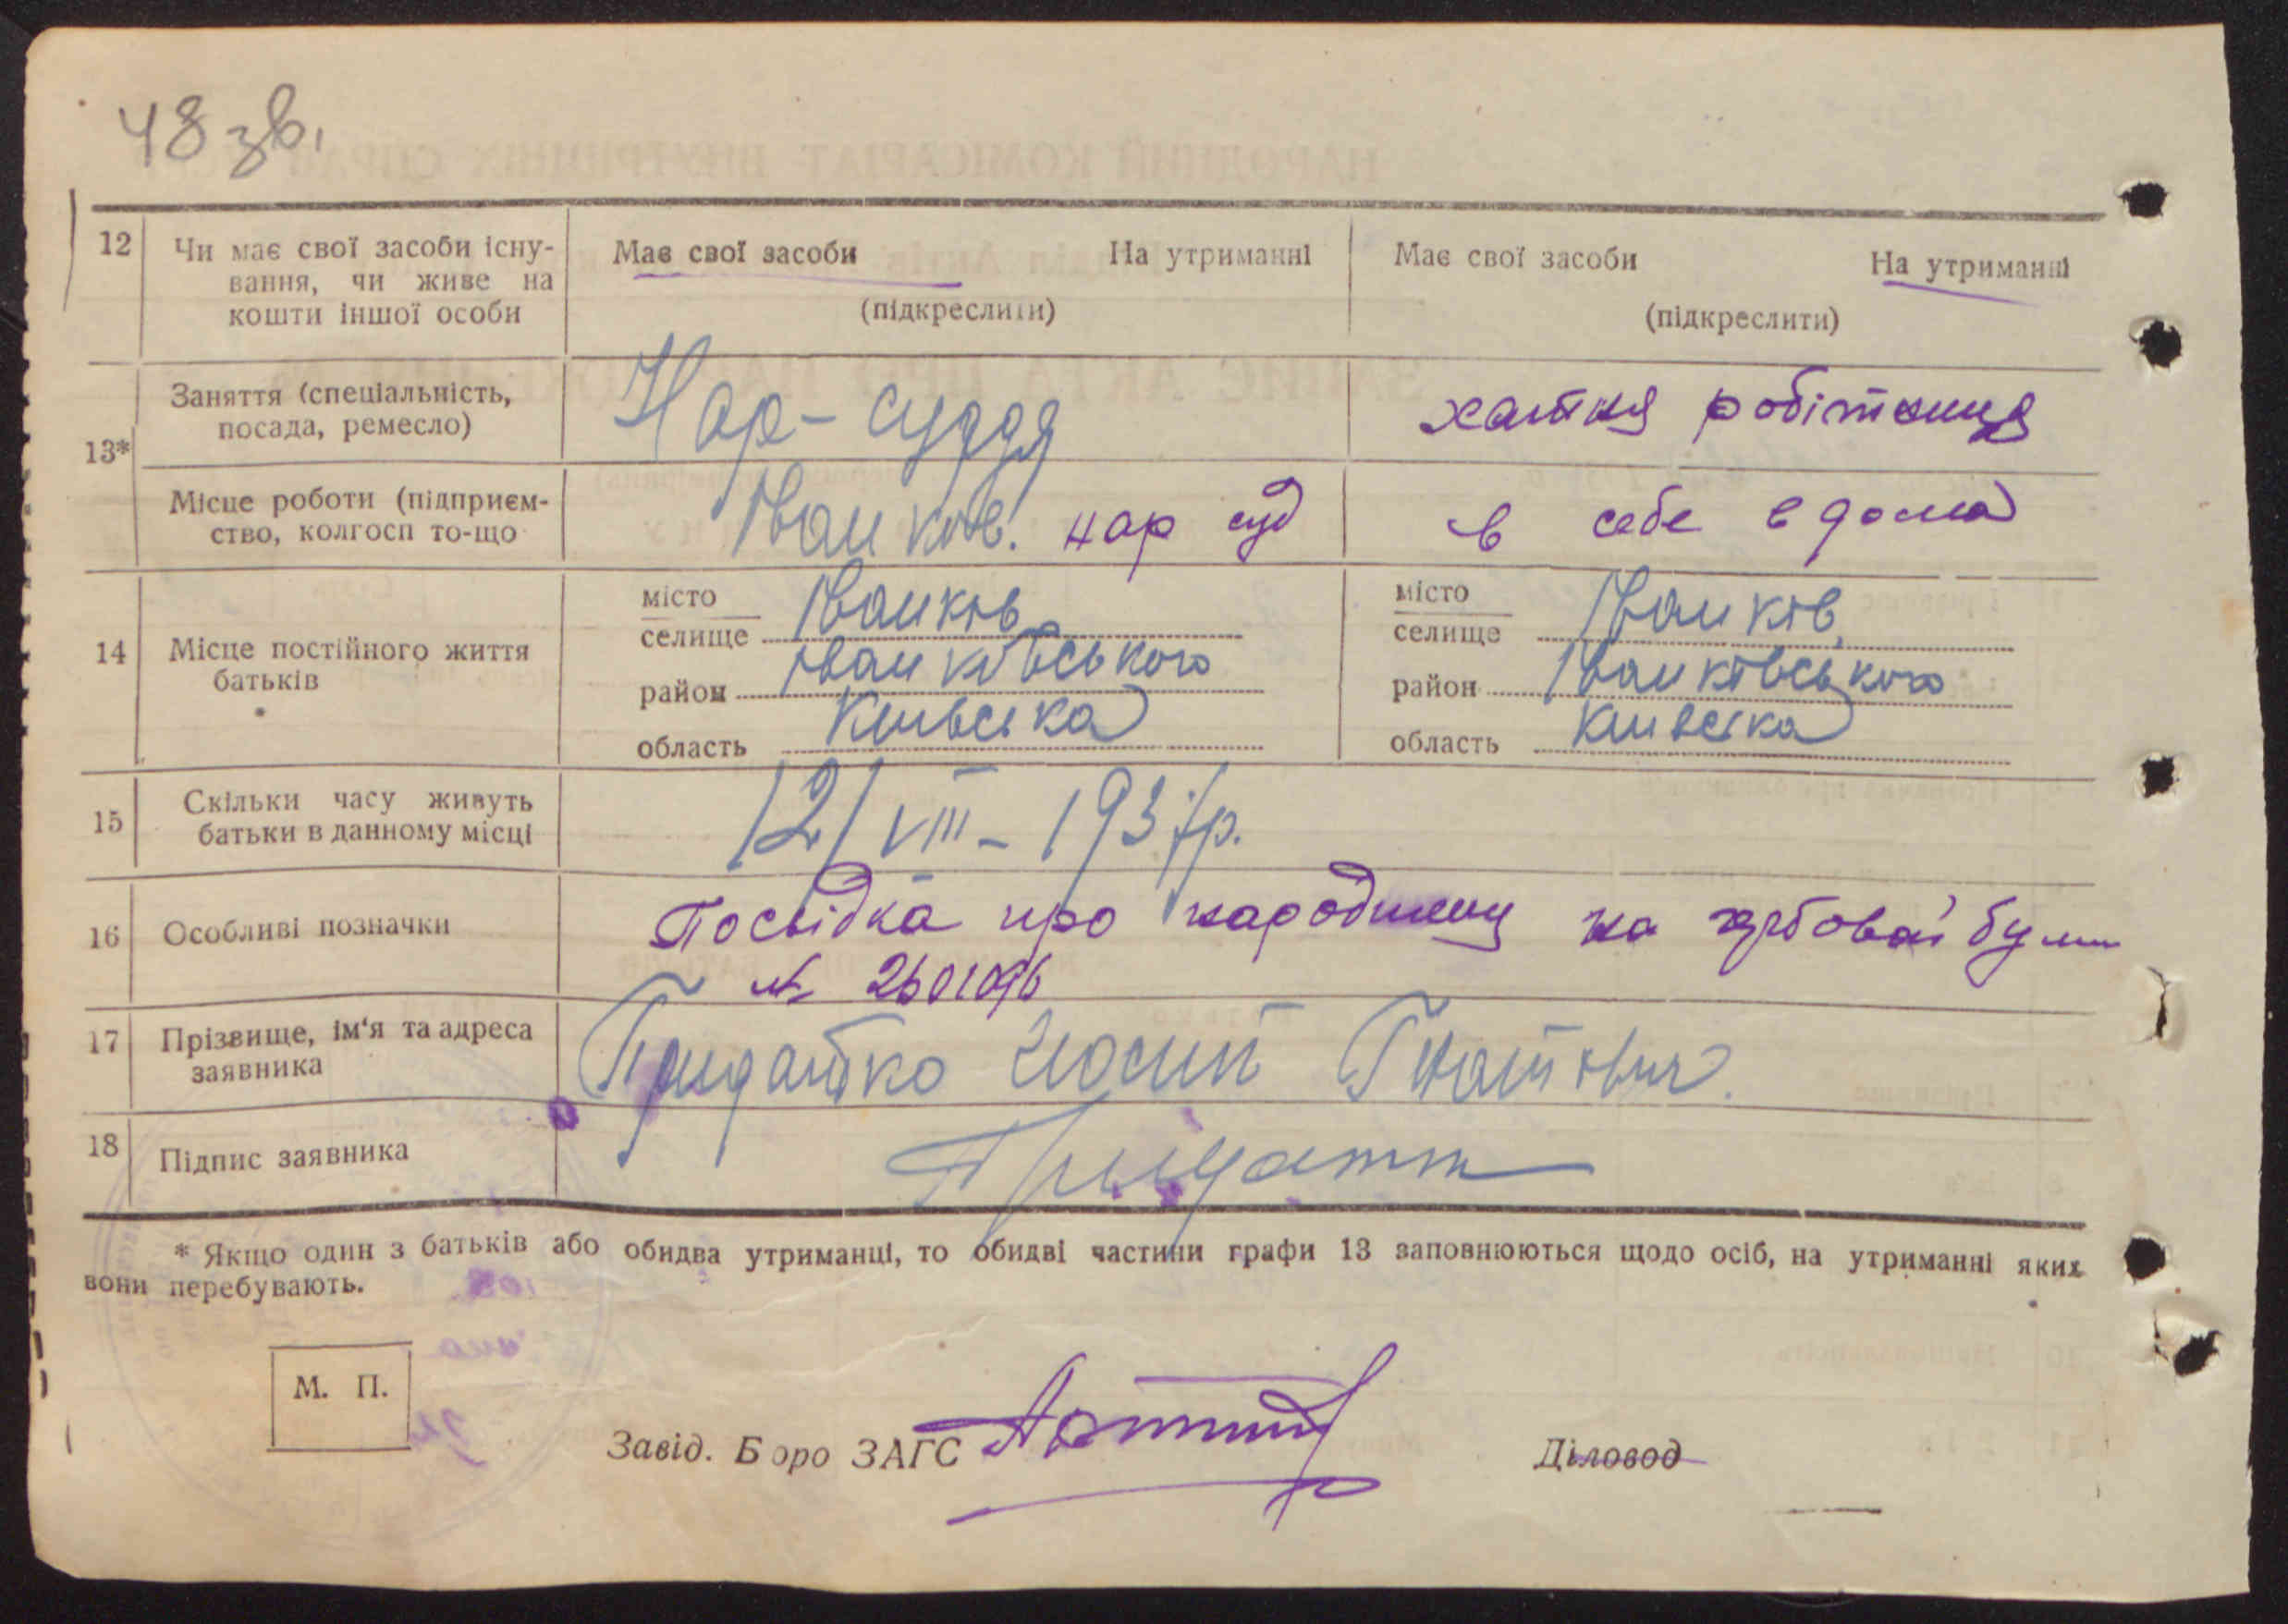 48 зв.
12 Чи має свої засоби існу-
вання, чи живе на
кошти іншої особи
Має свої засоби На утриманні
(підкреслити)
Має свої засоби На утриманні
(підкреслити)
13*
Заняття (спеціальність,
посада, ремесло)
Нар-суддя
хатня робітниця
Місце роботи (підприєм-
ство, колгосп то-що
Іванков. нар суд
в себе в дома
14 Місце постійного життя
батьків
місто
селище Іванків
район Іванковського
область Київська
місто
селище Іванків
район Іванковського
область Київська
15 Скільки часу живуть
батьки в данному місці
12/VIII - 1937р.
16 Особливі позначки
Посвідка про народження на гербовой
№ 2601096
17 Прізвище, ім'я та адреса
заявника
Придатко Йосип Гнатович.
18 Підпис заявника
* Якщо один з батьків або обидва утриманці, то обидві частини графи 13 заповнюються щодо осіб, на утриманні яких
вони перебувають.
М. П.
Завід. Бюро ЗАГС
Діловод